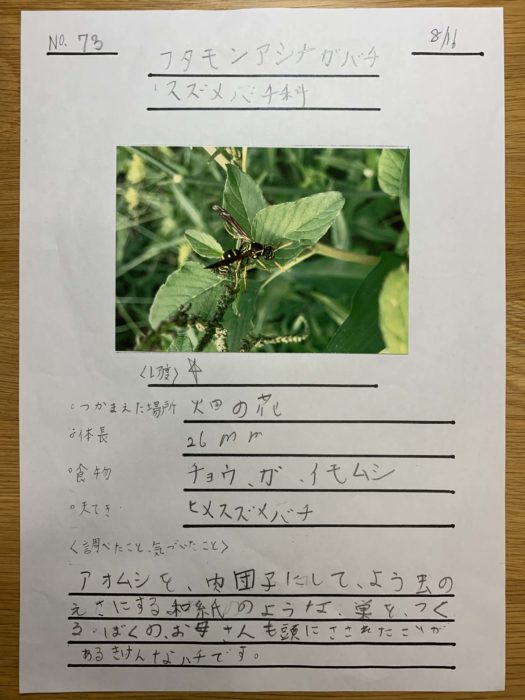 No. 73
8/16
フタモンアシナガバチ
スズメバチ科
<レア度> 4
○つかまえた場所 畑の花
○体長 26mm
○食物 チョウ、ガ、イモムシ
○天てき ヒメスズメバチ
<調べたこと、気づいたこと>
アオムシを、肉団子にして、よう虫の
えさにする和紙のような、巣を、つく
る。ぼくの、お母さんも頭にさされたことが
あるきけんなハチです。